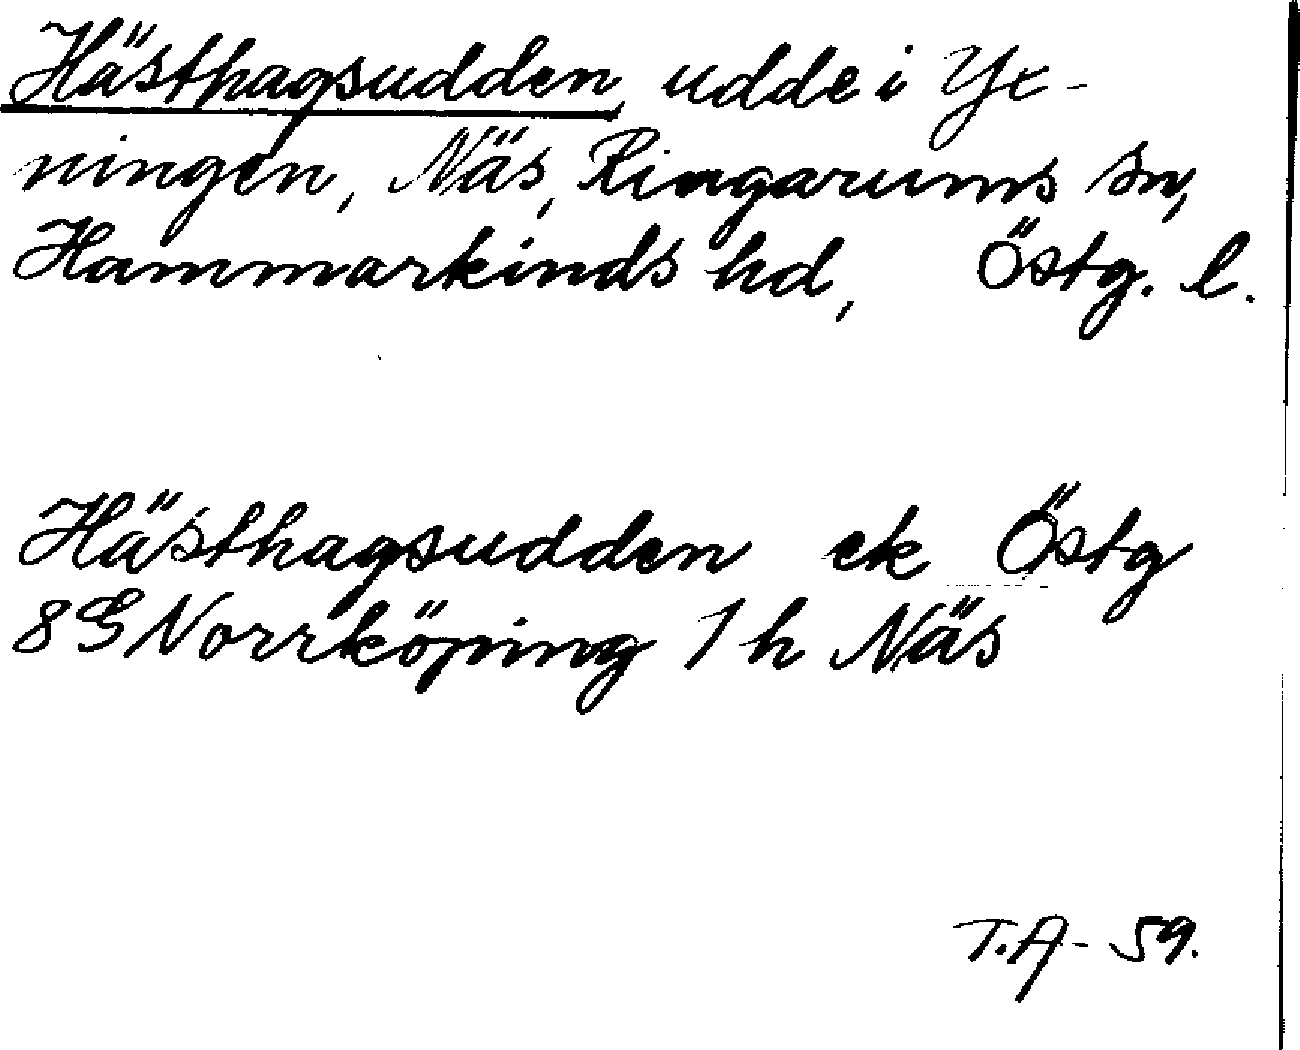 Hästhagsudden, udde i Yx-
ningen, Näs, Ringarums sn,
Hammarkinds hd, Östg. l.
Hästhagsudden ek Östg
8G Norrköping 1 h Näs
T.A - 59.